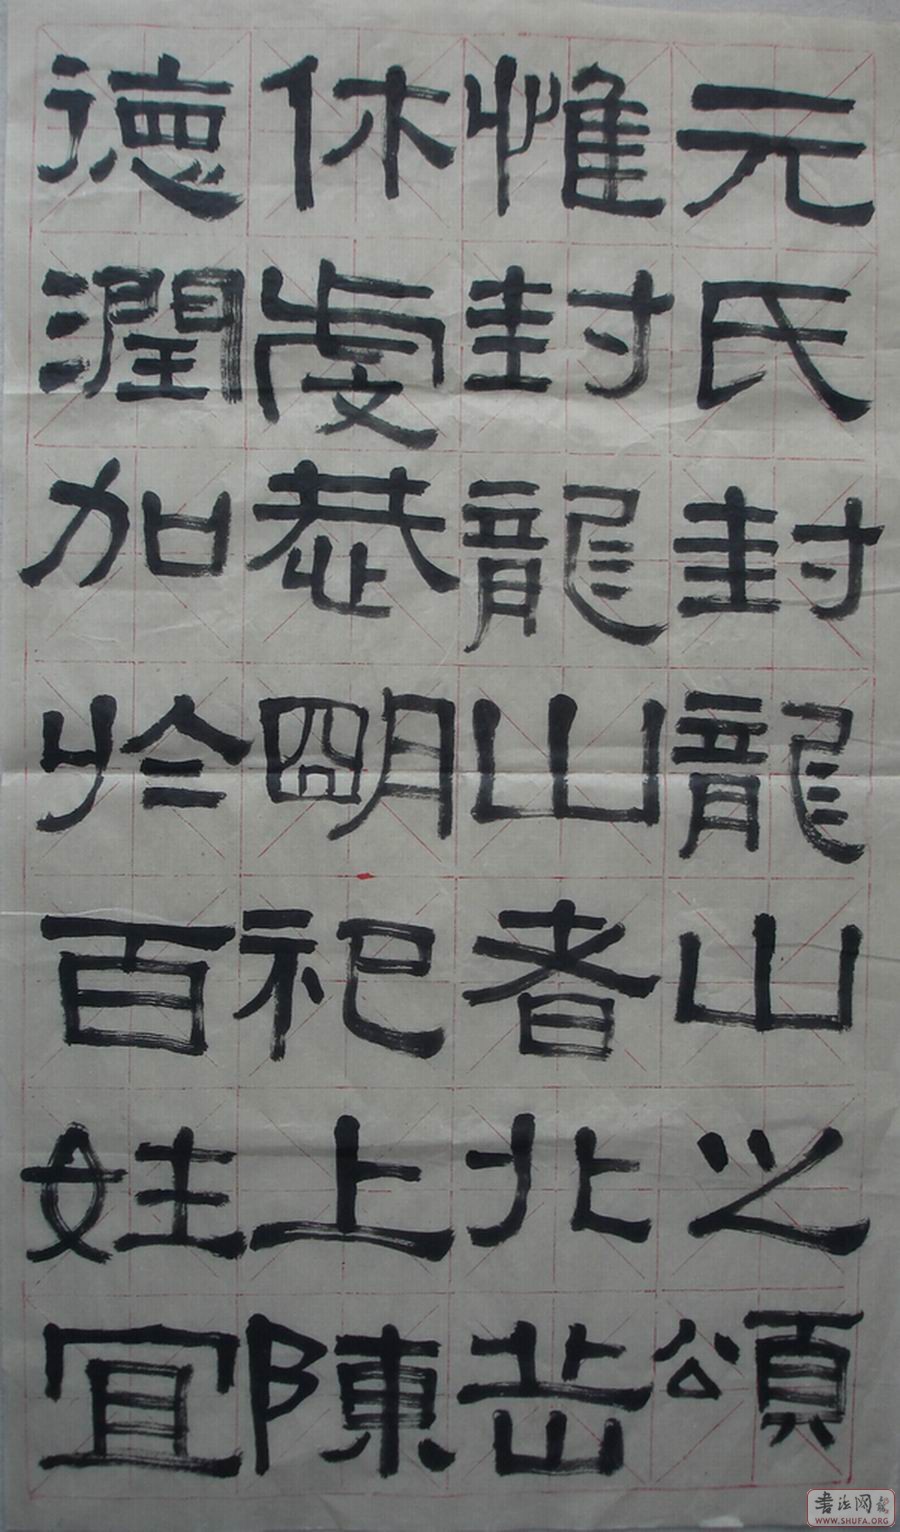 元氏封龍山之頌
惟封龍山者北岳
休虔恭明祀上陳
德潤加於百姓宜
书法网
WWW.SHUFA.ORG